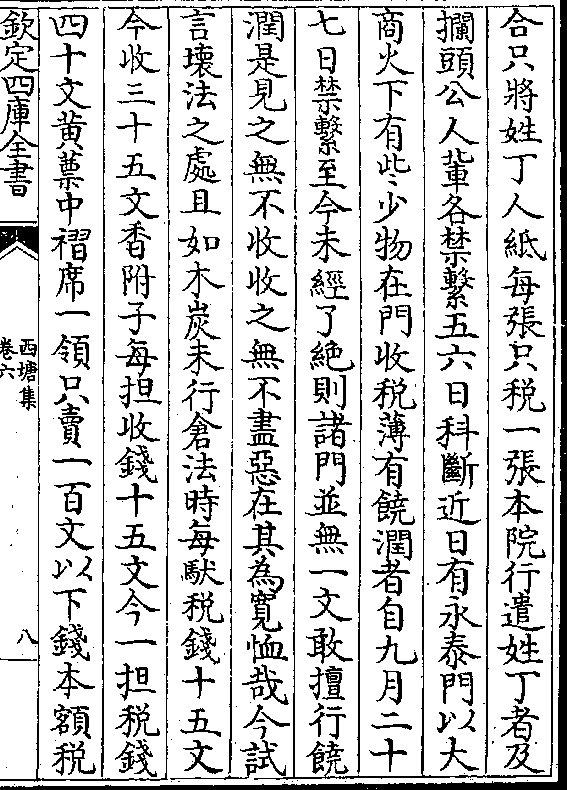 合只將姓丁人紙每張只税一張本院行遣姓丁者及
攔頭公人軰各禁繫五六日科斷近日有永泰門以大
商火下有些少物在門收税薄有饒潤者自九月二十
七日禁繫至今未經了絶則諸門並無一文敢擅行饒
潤是見之無不收收之無不盡惡在其為寛恤哉今試
言壊法之處且如木炭未行倉法時每馱税錢十五文
今收三十五文香附子每担收錢十五文今一担税錢
四十文黄蘃中褶席一領只賣一百文以下錢本額税
欽定四庫全書
西塘集
卷六
八